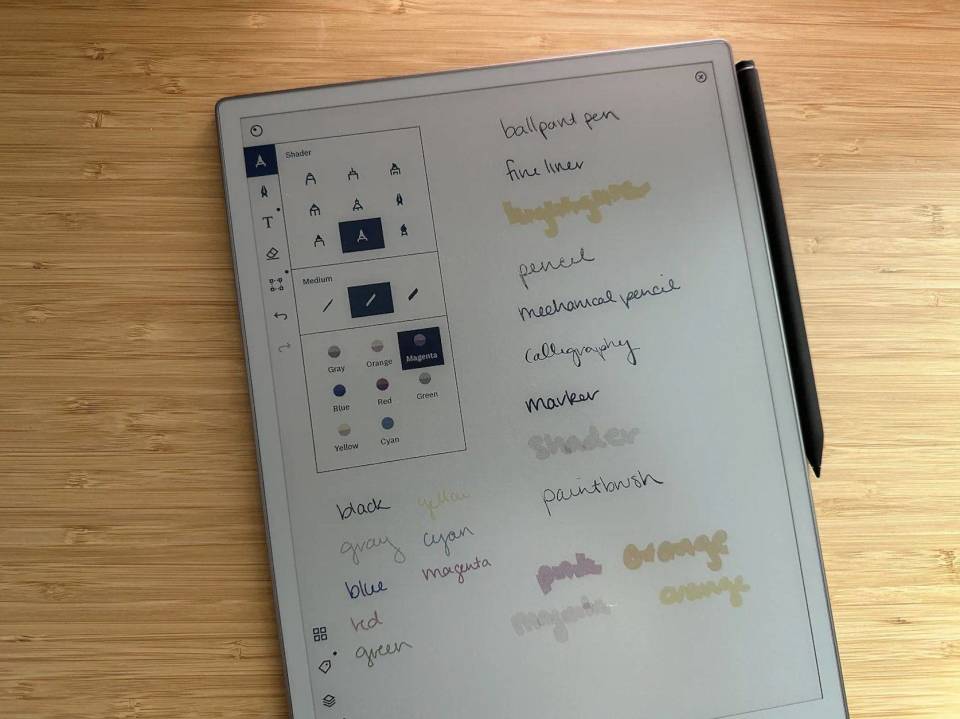 Shader
T
Medium
Gray Orange Magenta
Blue Red Green
Yellow Cyan
ballpoint pen
fineliner
pencil
mechanical pencil
calligraphy
marker
shader
paintbrush
black yellow
gray cyan
blue magenta
red
green
pink orange
magenta orange